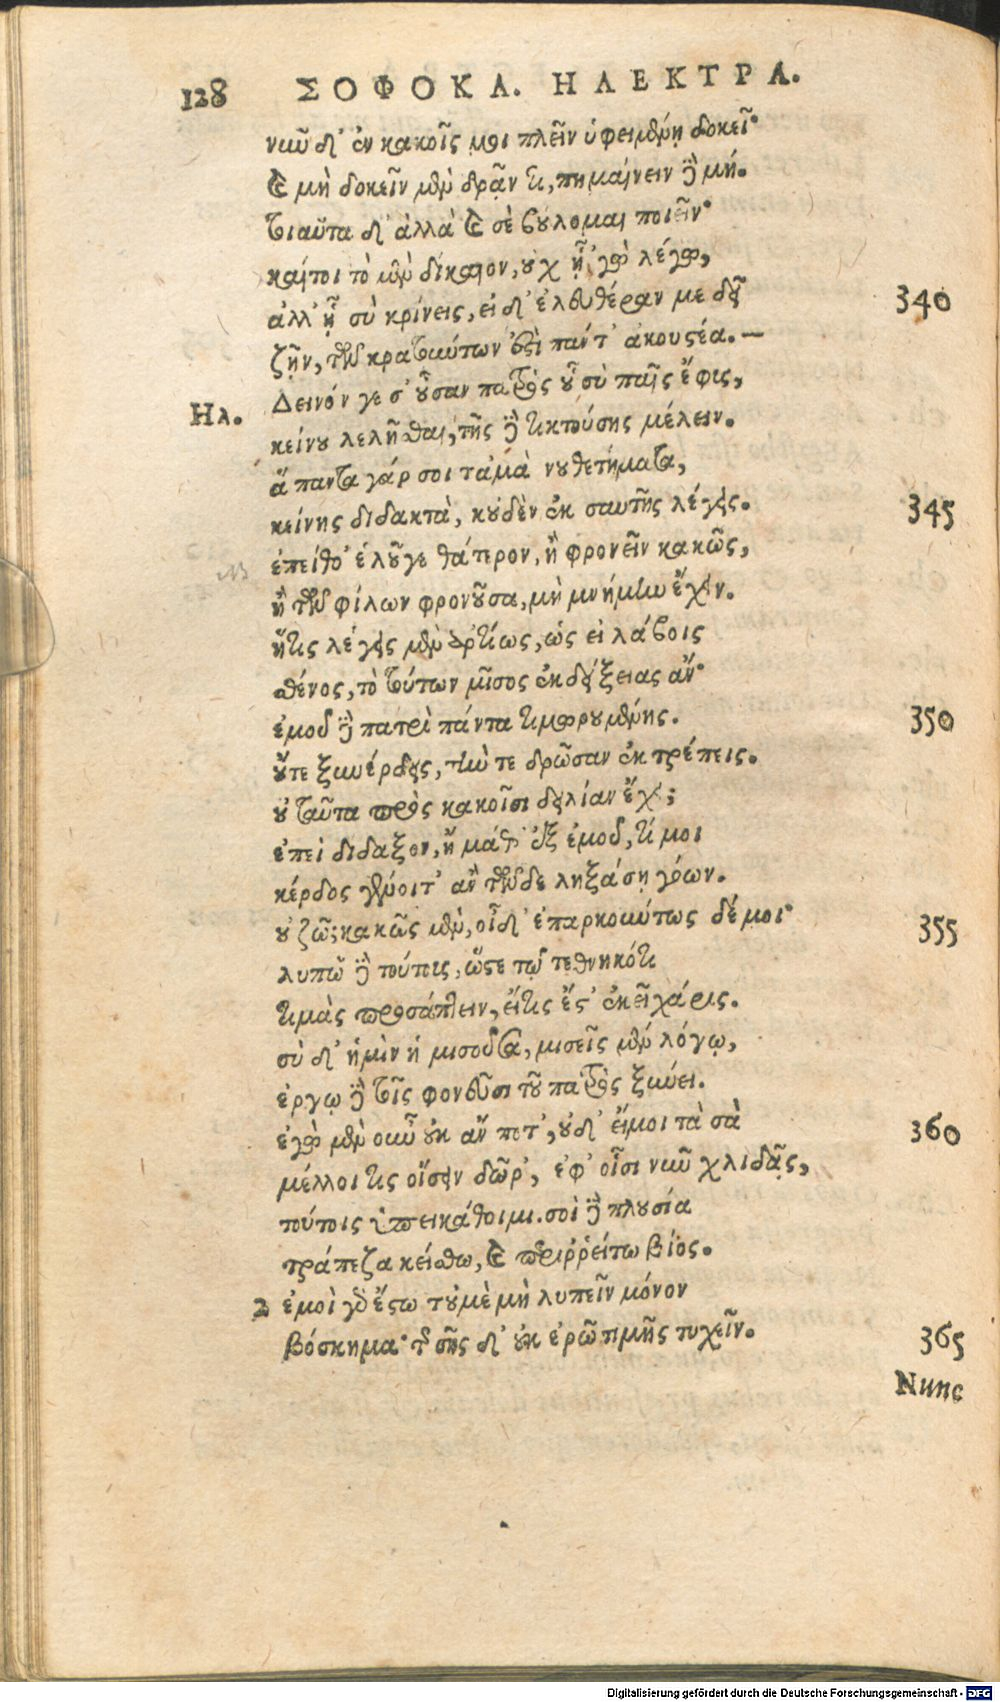 128 ΣΟΦΟΚΛ. ΗΛΕΚΤΡΑ.
νῦν δ' ἐν κακοῖς μοι πλεῖν ὑφειμένῃ δοκεῖ·
καὶ μὴ δοκεῖν μὲν δρᾶν τι, πημαίνειν δὲ μή.
τοιαῦτα δ' ἀλλὰ καὶ σὲ βούλομαι ποιεῖν·
καίτοι τὸ μὲν δίκαιον, οὐχ ᾗ 'γὼ λέγω,
ἀλλ' ᾗ σὺ κρίνεις, εἰ δ' ἐλευθέραν με δεῖ 340
ζῇν, τῶν κρατούντων ἐστὶ πάντ' ἀκουστέα.—
Ηλ. Δεινόν γε σ' οὖσαν πατρὸς οὗ σὺ παῖς ἔφυς,
κείνου λελῆσθαι, τῆς δὲ τικτούσης μέλειν.
ἅπαντα γάρ σοι τἀμὰ νουθετήματα,
κείνης διδακτὰ, κοὐδὲν ἐκ σαυτῆς λέγεις. 345
ἐπείθ' ἑλοῦγε θάτερον, ἢ φρονεῖν κακῶς,
ἢ τῶν φίλων φρονοῦσα, μὴ μνήμην ἔχειν.
ἥτις λέγεις μὲν ἀρτίως, ὡς εἰ λάβοις
σθένος, τὸ τούτων μῖσος ἐκδείξειας ἄν·
ἐμοῦ δὲ πατρὶ πάντα τιμωρουμένης. 350
οὔτε ξυνέρδεις, τήν τε δρῶσαν ἐκτρέπεις.
οὐ ταῦτα πρὸς κακοῖσι δειλίαν ἔχει;
ἐπεὶ δίδαξον, ἢ μάθ' ἐξ ἐμοῦ, τί μοι
κέρδος γένοιτ' ἂν τῶνδε ληξάσῃ γόων.
οὐ ζῶ; κακῶς μὲν, οἶδ' ἐπαρκούντως δέ μοι· 355
λυπῶ δὲ τούτοις, ὥστε τῷ τεθνηκότι
τιμὰς προσάπτειν, εἴτις ἔστ' ἐκεῖ χάρις.
σὺ δ' ἡμὶν ἡ μισοῦσα, μισεῖς μὲν λόγῳ,
ἔργῳ δὲ τοῖς φονεῦσι τοῦ πατρὸς ξύνει.
ἐγὼ μὲν οὖν οὐκ ἄν ποτ', οὐδ' εἴμοι τὰ σὰ 360
μέλλοι τις οἴσειν δῶρ', ἐφ' οἷσι νῦν χλιδᾷς,
τούτοις ὑπεικάθοιμι. σοὶ δὲ πλουσία
τράπεζα κείσθω, καὶ περιῤῥείτω βίος.
2 ἐμοὶ γὰρ ἔστω τοὐμὲ μὴ λυπεῖν μόνον
βόσκημα· τῆς σῆς δ' οὐκ ἐρῶ τιμῆς τυχεῖν. 365
Nunc
Digitalisierung gefördert durch die Deutsche Forschungsgemeinschaft - DFG